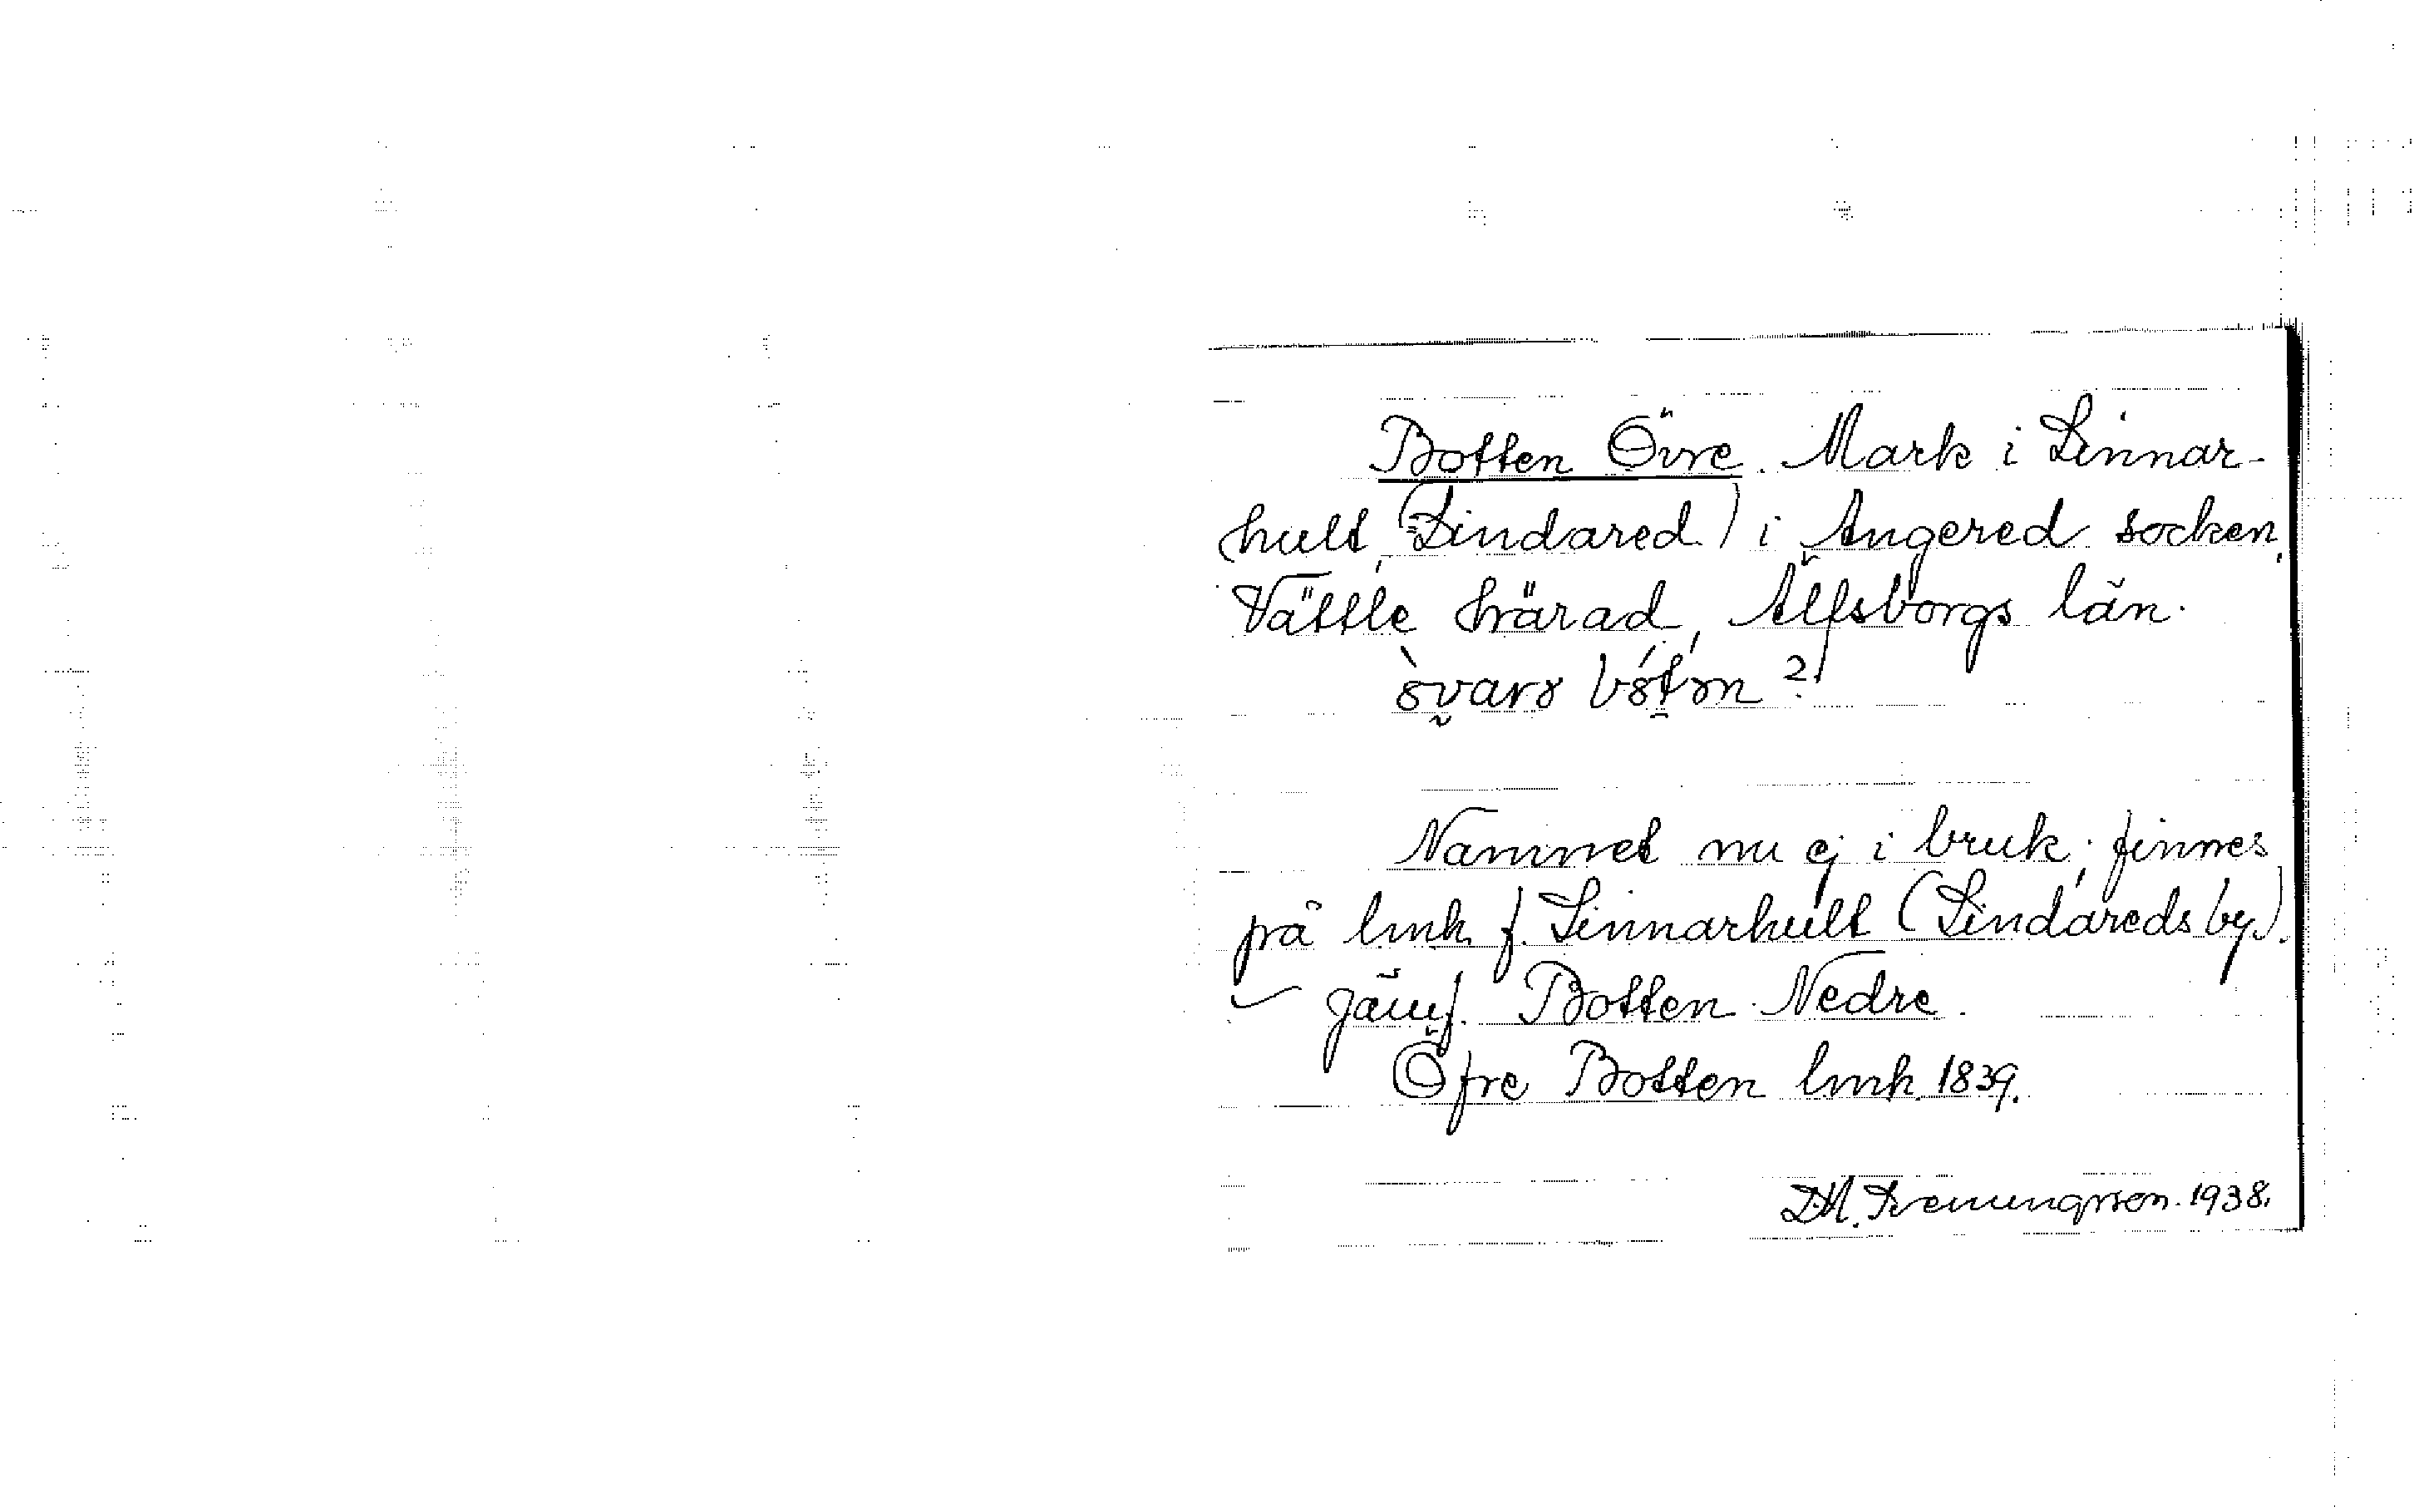 Botten Övre. Mark i Linnar-
hult (Lindared) i Angered socken,
Vättle härad, Älfsborgs län.
Namnet nu ej i bruk; finnes
på lmk f. Linnarhult (Lindareds by).
Jämf. Botten Nedre.
Öfre Botten lmk 1839.
1938.